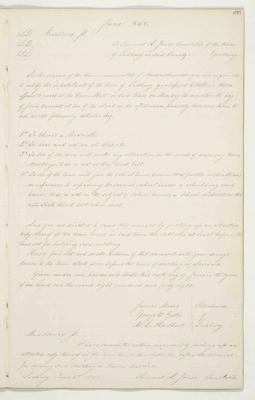 June 1848.
L.S. Middlesex ss.
L.S. To Emmont A. Jones Constable of the town
L.S. of in said County. Greeting.
In the name of the Commonwealth of Massachusetts you are required
to notify the inhabitants of the town of qualified to vote in town
affairs to meet at the Town Hall in said town on Monday the nineteenth day
of June current at two of the clock in the afternoon precisely, then and there to
act on the following articles viz.
1st To choose a Moderator.
2d To hear and act on all Reports.
3d To see if the town will make any alteration in the mode of warning town
meetings, or to act as they think best.
4th To see if the town will give the school house committee further instructions
in reference to repairing the present school houses or building
houses, or to act on the subject of school houses or school as the
town shall think best when met.
And you are directed to serve this warrant by posting up an attested
copy thereof at the town house in said town ten at least before the
time set for holding said meeting.
Hereof fail not and make Return of this warrant with your doings
thereon to the town clerk at or before the time of meeting as aforesaid.
Given under our hands and seals this sixth day of June in the year
of our Lord one thousand eight hundred and forty eight.
James Selectmen
George of
Middlesex ss.
I have served the within warrant by posting up an
attested copy thereof at the town house ten before the time set
for holding said meeting as herein directed.
June 1848. A. Jones Constable